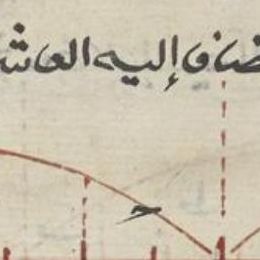 ضاف إليه العاش